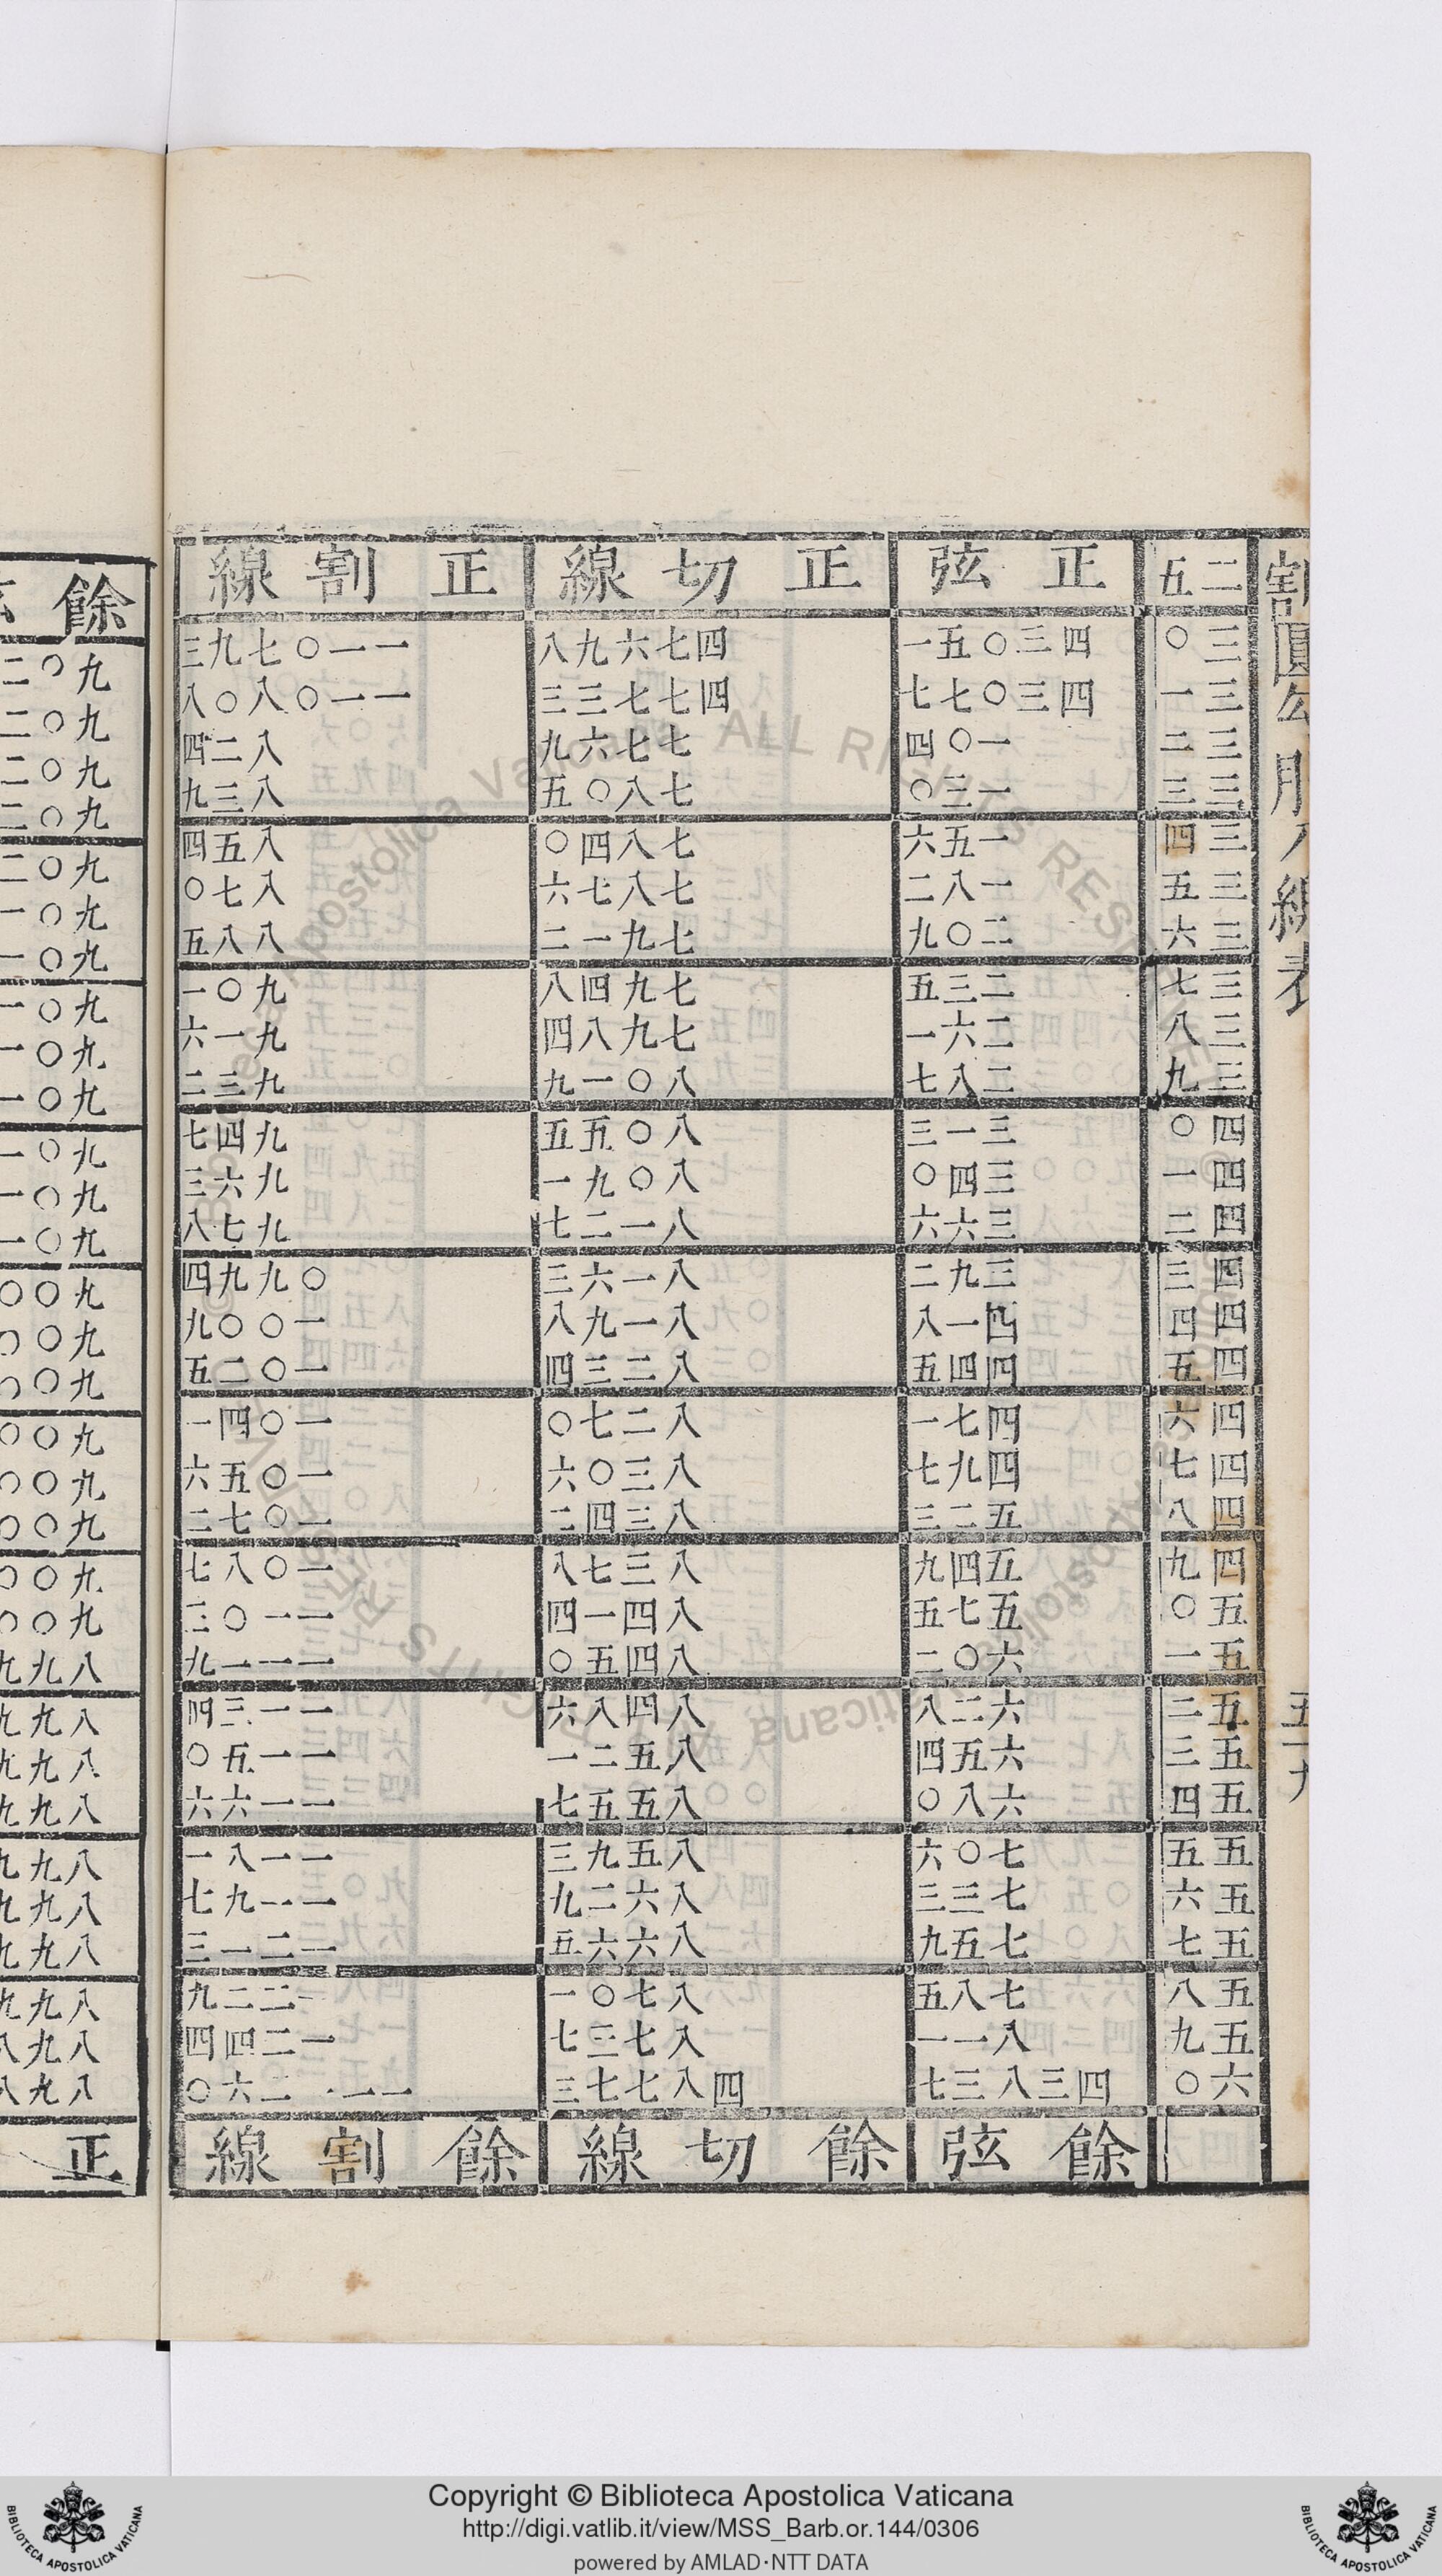 割圓勾股八線表
五十九
二五 正弦 正切線 正割線
三〇 四三〇五一 四七六九八 一一〇七九三
三一 四三〇七七 四七七三三 一一〇八〇八
三二 一〇四 七七六九 八二四
三三 一三〇 七八〇五 八三九
三四 一五六 七八四〇 八五四
三五 一八二 七八七六 八七〇
三六 二〇九 七九一二 八八五
三七 二三五 七九四八 九〇一
三八 二六一 七九八四 九一六
三九 二八七 八〇一九 九三二
四〇 三一三 八〇五五 九四七
四一 三四〇 八〇九一 九六三
四二 三六六 八一二七 九七八
四三 三九二 八一六三 〇九九四
四四 四一八 八一九八 一〇〇九
四五 四四五 八二三四 一〇二五
四六 四七一 八二七〇 一〇四一
四七 四九七 八三〇六 一〇五六
四八 五二三 八三四二 一〇七二
四九 五四九 八三七八 一〇八七
五〇 五七五 八四一四 一一〇三
五一 六〇二 八四五〇 一一一九
五二 六二八 八四八六 一一三四
五三 六五四 八五二一 一一五〇
五四 六八〇 八五五七 一一六六
五五 七〇六 八五九三 一一八一
五六 七三三 八六二九 一一九七
五七 七五九 八六六五 一二一三
五八 七八五 八七〇一 一二二九
五九 八一一 八七三七 一二四四
六〇 四三八三七 四八七七三 一一一二六〇
餘弦 餘切線 餘割線
餘
九〇二
九〇二
九〇二
九〇二
九〇二
九〇一
九〇一
九〇一
九〇一
九〇一
九〇一
九〇一
九〇一
九〇〇
九〇〇
九〇〇
九〇〇
九〇〇
九〇〇
九〇〇
九〇〇
八九九
八九九
八九九
八九九
八九九
八九九
八九九
八九九
八九八
八九八
正
Copyright © Biblioteca Apostolica Vaticana
http://digi.vatlib.it/view/MSS_Barb.or.144/0306
powered by AMLAD·NTT DATA